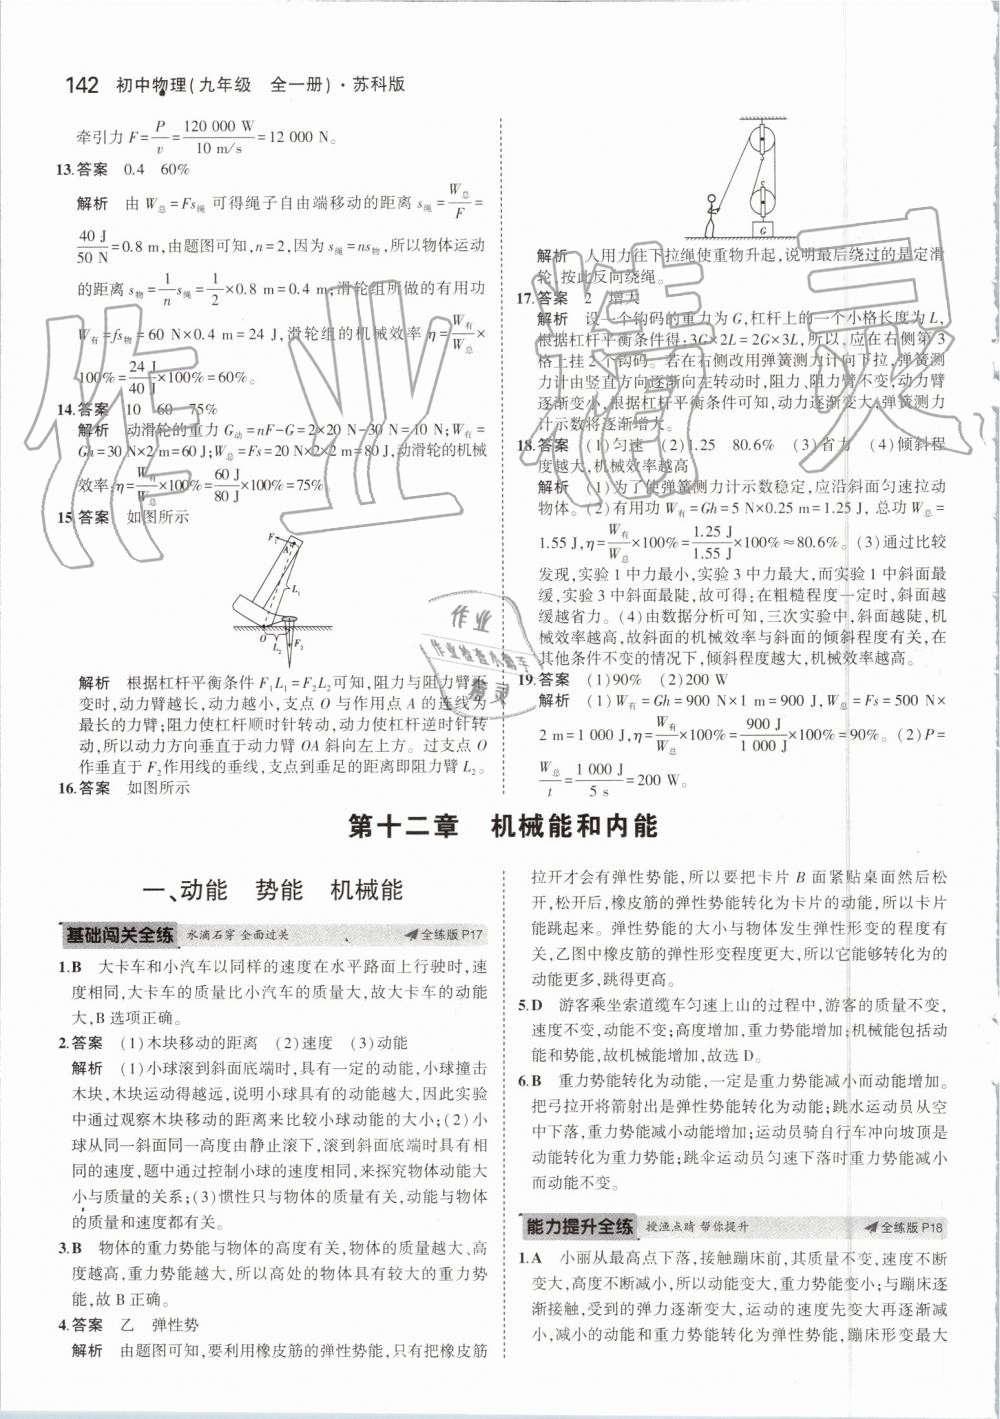 142 初中物理(九年级 全一册)·苏科版
牵引力 F=P/v=120 000 W/10 m/s=12 000 N。
13.答案 0.4 60%
解析 由 W总=Fs绳 可得绳子自由端移动的距离 s绳=W总/F=
40 J/50 N=0.8 m,由题图可知,n=2,因为 s绳=ns物,所以物体运动
的距离 s物=1/n s绳=1/2×0.8 m=0.4 m;滑轮组所做的有用功
W有=fs物=60 N×0.4 m=24 J,滑轮组的机械效率 η=W有/W总×
100%=24 J/40 J×100%=60%。
14.答案 10 60 75%
解析 动滑轮的重力 G动=nF-G=2×20 N-30 N=10 N;W有=
Gh=30 N×2 m=60 J;W总=Fs=20 N×2×2 m=80 J,动滑轮的机械
效率:η=W有/W总×100%=60 J/80 J×100%=75%。
15.答案 如图所示
F1
A
L1
O
L2
F2
解析 根据杠杆平衡条件 F1L1=F2L2可知,阻力与阻力臂不
变时,动力臂越长,动力越小,支点 O 与作用点 A 的连线为
最长的力臂;阻力使杠杆顺时针转动,动力使杠杆逆时针转
动,所以动力方向垂直于动力臂 OA 斜向左上方。过支点 O
作垂直于 F2作用线的垂线,支点到垂足的距离即阻力臂 L2。
16.答案 如图所示
G
解析 人用力往下拉绳使重物升起,说明最后绕过的是定滑
轮,按此反向绕绳。
17.答案 2 增大
解析 设一个钩码的重力为 G,杠杆上的一个小格长度为 L,
根据杠杆平衡条件得:3G×2L=2G×3L,所以,应在右侧第 3
格上挂 2 个钩码。若在右侧改用弹簧测力计向下拉,弹簧测
力计由竖直方向逐渐向左转动时,阻力、阻力臂不变,动力臂
逐渐变小,根据杠杆平衡条件可知,动力逐渐变大,弹簧测力
计示数将逐渐增大。
18.答案 (1)匀速 (2)1.25 80.6% (3)省力 (4)倾斜程
度越大,机械效率越高
解析 (1)为了使弹簧测力计示数稳定,应沿斜面匀速拉动
物体。(2)有用功 W有=Gh=5 N×0.25 m=1.25 J, 总功 W总=
1.55 J,η=W有/W总×100%=1.25 J/1.55 J×100%≈80.6%。(3)通过比较
发现,实验 1 中力最小,实验 3 中力最大,而实验 1 中斜面最
缓,实验 3 中斜面最陡,故可得:在粗糙程度一定时,斜面越
缓越省力。(4)由数据分析可知,三次实验中,斜面越陡,机
械效率越高,故斜面的机械效率与斜面的倾斜程度有关,在
其他条件不变的情况下,倾斜程度越大,机械效率越高。
19.答案 (1)90% (2)200 W
解析 (1)W有=Gh=900 N×1 m=900 J,W总=Fs=500 N×
2 m=1 000 J,η=W有/W总×100%=900 J/1 000 J×100%=90%。(2)P=
W总/t=1 000 J/5 s=200 W。
第十二章 机械能和内能
一、动能 势能 机械能
基础闯关全练 水滴石穿 全面过关 全练版 P17
1.B 大卡车和小汽车以同样的速度在水平路面上行驶时,速
度相同,大卡车的质量比小汽车的质量大,故大卡车的动能
大,B 选项正确。
2.答案 (1)木块移动的距离 (2)速度 (3)动能
解析 (1)小球滚到斜面底端时,具有一定的动能,小球撞击
木块,木块运动得越远,说明小球具有的动能越大,因此实验
中通过观察木块移动的距离来比较小球动能的大小;(2)小
球从同一斜面同一高度由静止滚下,滚到斜面底端时具有相
同的速度,题中通过控制小球的速度相同,来探究物体动能大
小与质量的关系;(3)惯性只与物体的质量有关,动能与物体
的质量和速度都有关。
3.B 物体的重力势能与物体的高度有关,物体质量越大、高
度越高,重力势能越大,所以高处的物体具有较大的重力势
能,故 B 正确。
4.答案 乙 弹性势
解析 由题图可知,要利用橡皮筋的弹性势能,只有把橡皮筋
拉开才会有弹性势能,所以要把卡片 B 面紧贴桌面然后松
开,松开后,橡皮筋的弹性势能转化为卡片的动能,所以卡片
能跳起来。弹性势能的大小与物体发生弹性形变的程度有
关,乙图中橡皮筋的弹性形变程度更大,所以它能够转化为的
动能更多,跳得更高。
5.D 游客乘坐索道缆车匀速上山的过程中,游客的质量不变,
速度不变,动能不变;高度增加,重力势能增加;机械能包括动
能和势能,故机械能增加,故选 D。
6.B 重力势能转化为动能,一定是重力势能减小而动能增加。
把弓拉开将箭射出是弹性势能转化为动能;跳水运动员从空
中下落,重力势能减小动能增加;运动员骑自行车冲向坡顶是
动能转化为重力势能;跳伞运动员匀速下落时重力势能减小
而动能不变。
能力提升全练 授渔点睛 帮你提升 全练版 P18
1.A 小丽从最高点下落,接触蹦床前,其质量不变,速度不断
变大,高度不断减小,所以动能变大,重力势能变小;与蹦床逐
渐接触,受到的弹力逐渐变大,运动的速度先变大再逐渐减
小,动能和重力势能转化为弹性势能,蹦床形变最大
作业精灵
作业
作业检查小帮手
精灵